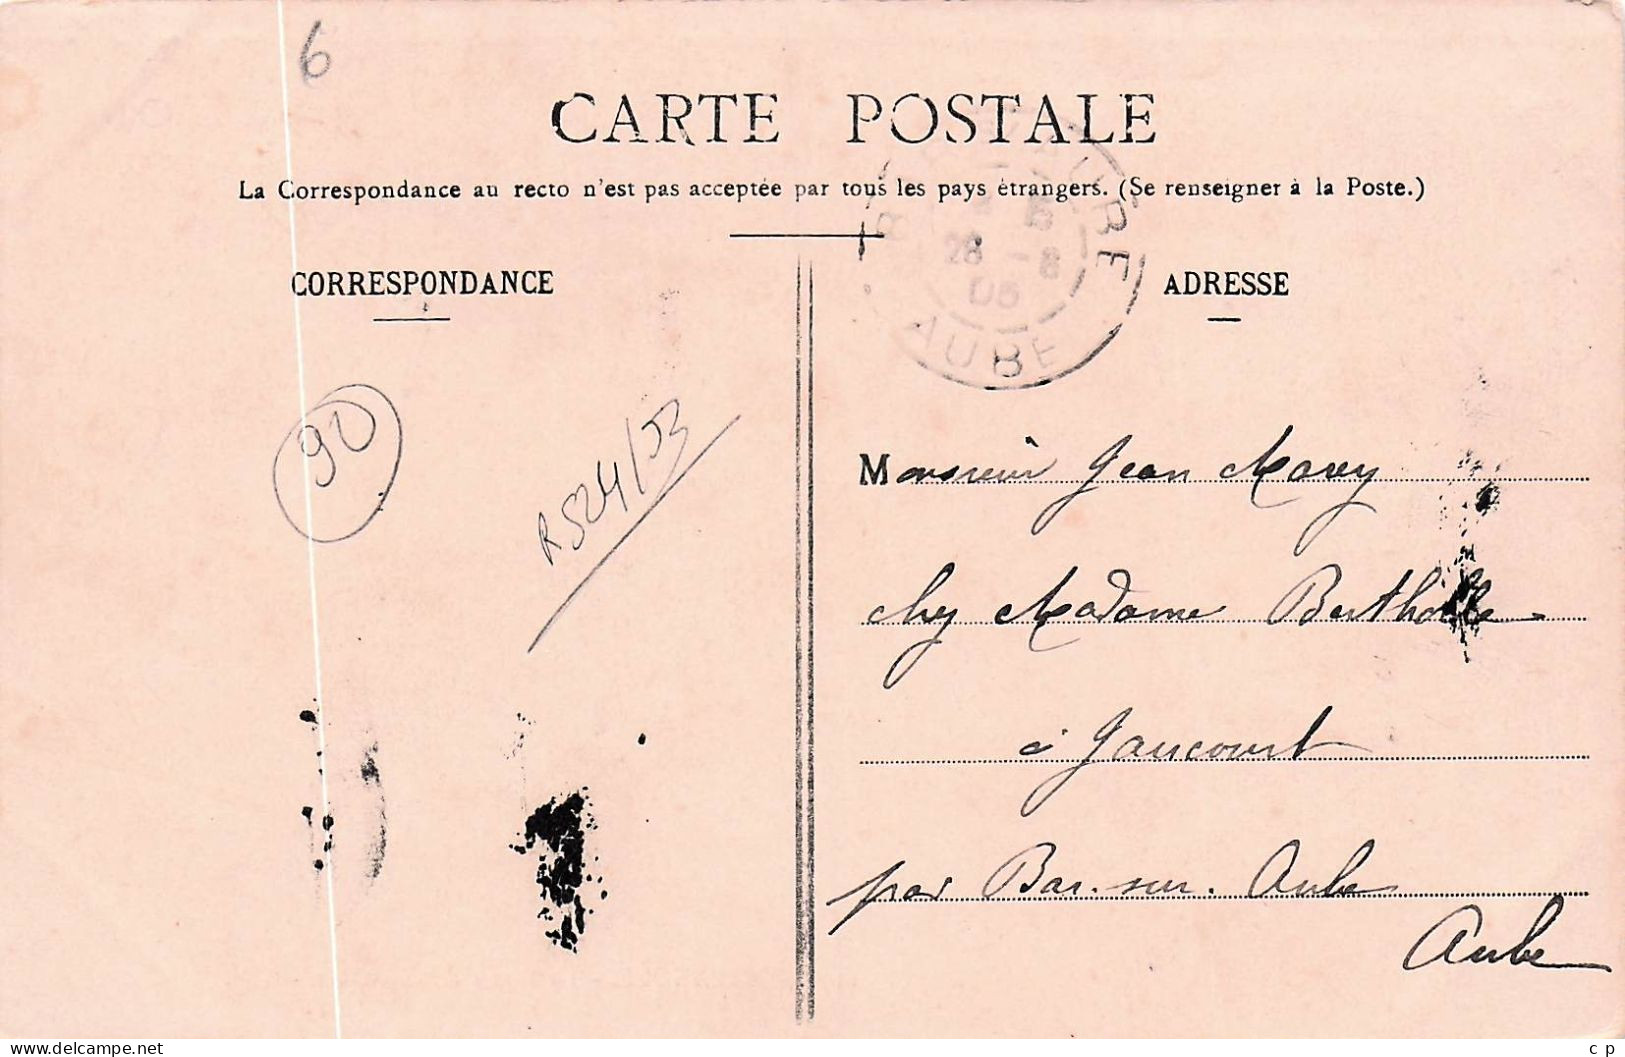 6
CARTE POSTALE
La Correspondance au recto n'est pas acceptée par tous les pays étrangers. (Se renseigner à la Poste.)
28 - 8
05
AUBE
CORRESPONDANCE
ADRESSE
90
R 524/53
Monsieur Jean Marey
chez Madame
à Jaucourt
par Bar-sur-Aube
Aube
www.delcampe.net
c p